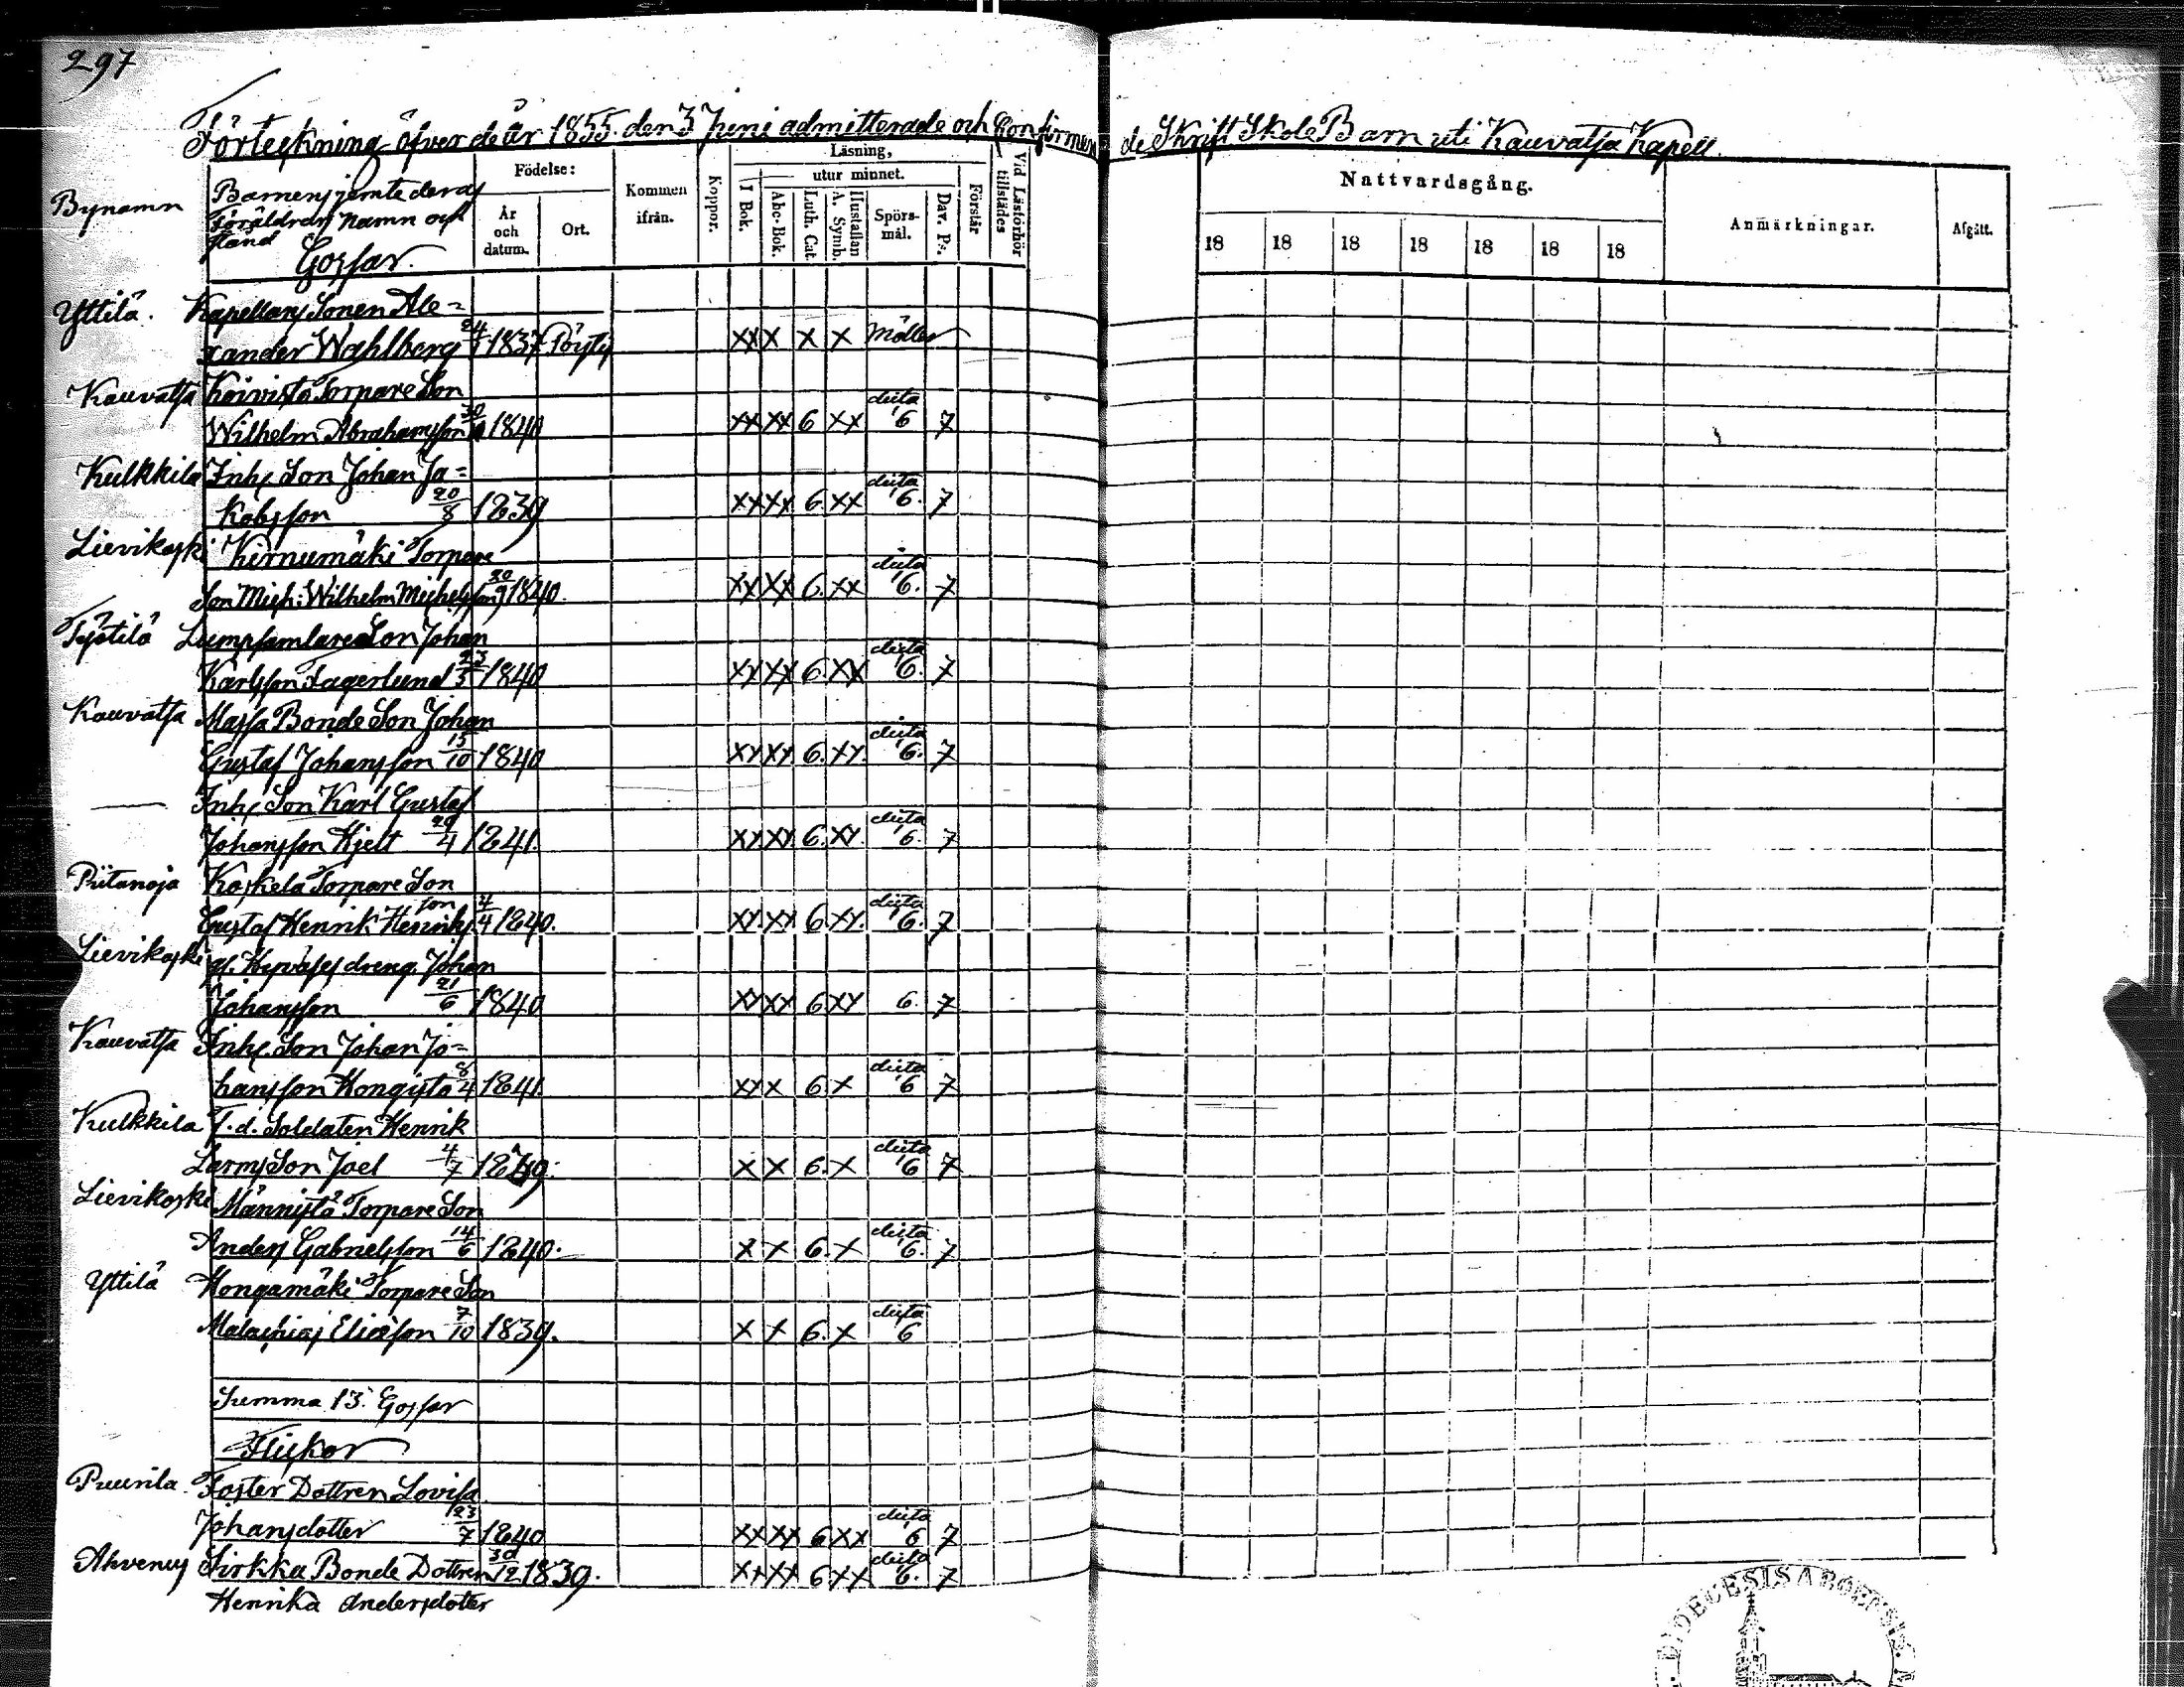 297
Förteckning öfver de år 1855. den 3 Juni admitterade och Confirmerade Skrift Skole Barn uti Kauvatsa Kapell.
Bynamn
Barnens jemte deras
Föräldrars Namn och
stånd
Gossar.
Födelse:
År
och
datum.
Ort.
Kommen
ifrån.
Koppor.
Läsning,
utur minnet.
I Bok.
Abc-Bok.
Luth. Cat.
Hustaflan
A. Symb.
Spörs-
mål.
Dav. Ps.
Förstår
Vid Läsförhör
tillstädes
Nattvardsgång.
18 18 18 18 18 18 18
Anmärkningar.
Afgått.
Yttilä. Kapellans Sonen Ale=
xander Wahlberg 1837 Pöytis xx x x x Möller
Kauvatsa Koivisto Torpare Son
Wilhelm Abrahamsson 1840 xx xx 6 xx dito 6 7
Kulkkila Inh. Son Johan Ja=
kobsson 20/8 1839 xx xx 6 xx dito 6. 7
Lievikoski Kirnumäki Torpare
Son Mich: Wilhelm Michelsson 30/9 1840. xx xx 6. xx dito 6. 7
Työtilä Lumpsamlare Son Johan
Karlsson Lagerlund 23/3 1840 xx xx 6 xx dito 6. 7
Kauvatsa Massa Bonde Son Johan
Gustaf Johansson 15/10 1840 xx xx 6. xx. dito 6. 7
— Inh. Son Karl Gustaf
Johansson Hjelt 29/4 1841. xx xx 6. xx. dito 6. 7
Piitanoja Koskela Torpare Son
Gustaf Henrik Henriksson 4/4 1840. xx xx 6 xx. dito 6. 7
Lievikoski dreng Johan
Johansson 21/6 1840 xx xx 6 xx 6. 7
Kauvatsa Inh. Son Johan Jo=
hansson Hongisto 8/4 1841. xx x 6 x dito 6 7
Kulkkila T. d. Soldaten Henrik
Larms Son Joel 4/7 xx 6. x dito 6 7
Lievikoski Männistö Torpare Son
Anders Gabrielsson 14/6 1840. x x 6. x dito 6. 7
Yttilä Hongamäki Torpare Son
Malachias Eliasson 7/10 1839. x x 6. x dito 6
Summa 13. Gossar
Flickor
Puurila. Foster Dottren Lovisa
Johansdotter 23/7 1840 xx xx 6 xx dito 6 7
Ahvenus Sirkka Bonde Dottren 30/12 1839. xx xx 6 xx dito 6. 7
Henrika Andersdotter
DIOECESIS ABOENSIS